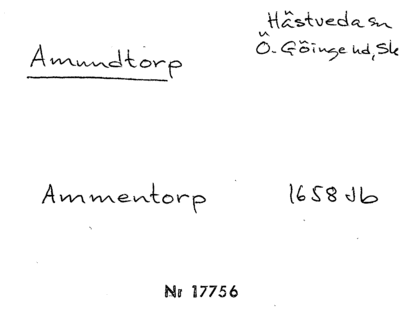 Hästveda sn
Amundtorp
Ö. Göinge hd, Sk
Ammentorp 1658 Jb
Nr 17756